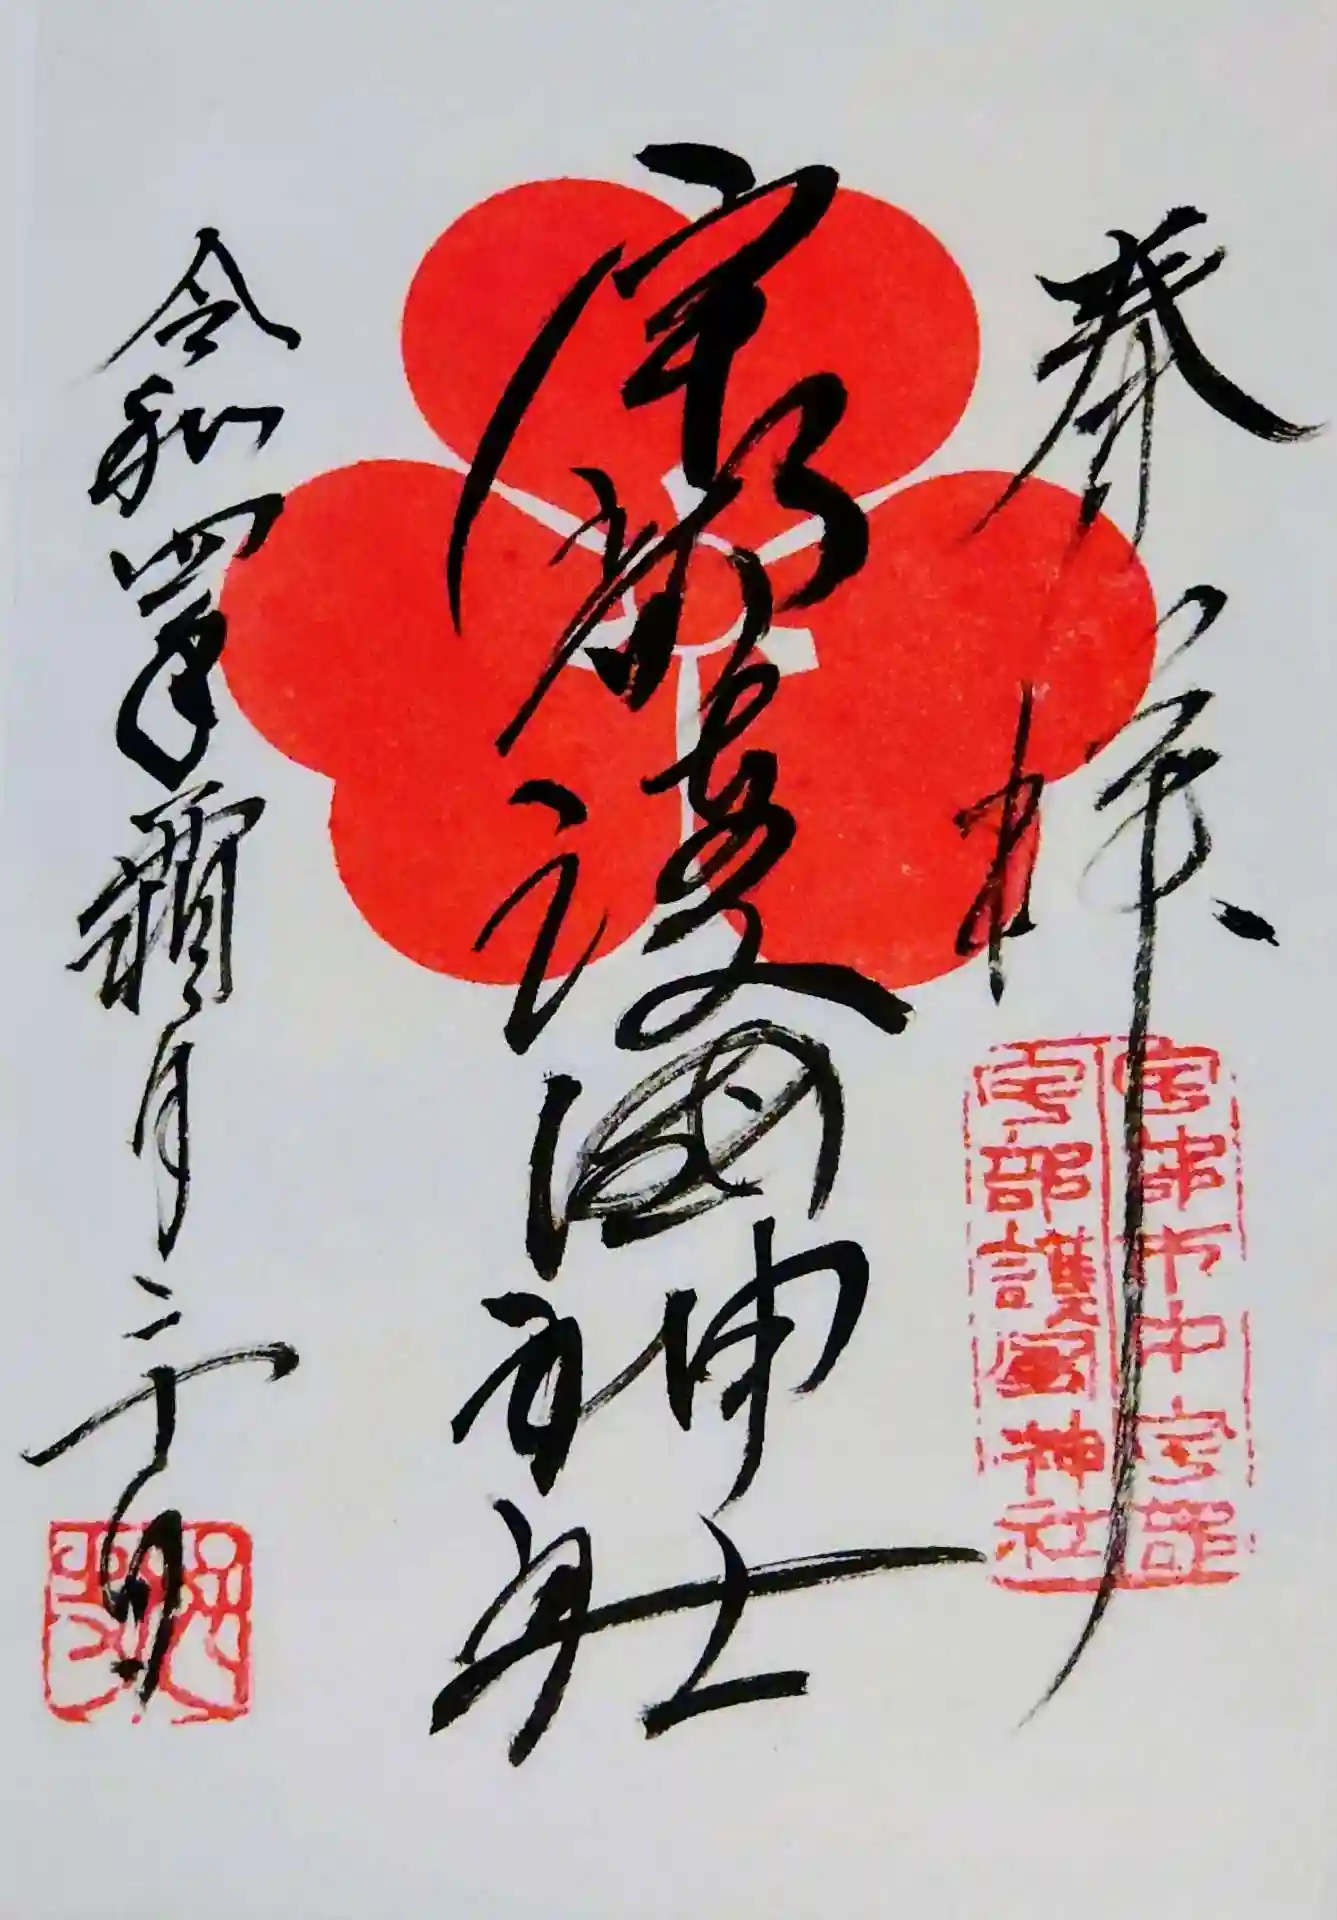 奉拝
宇部市中宇部
宇部護國神社
宇部護國神社
令和四年霜月二十日